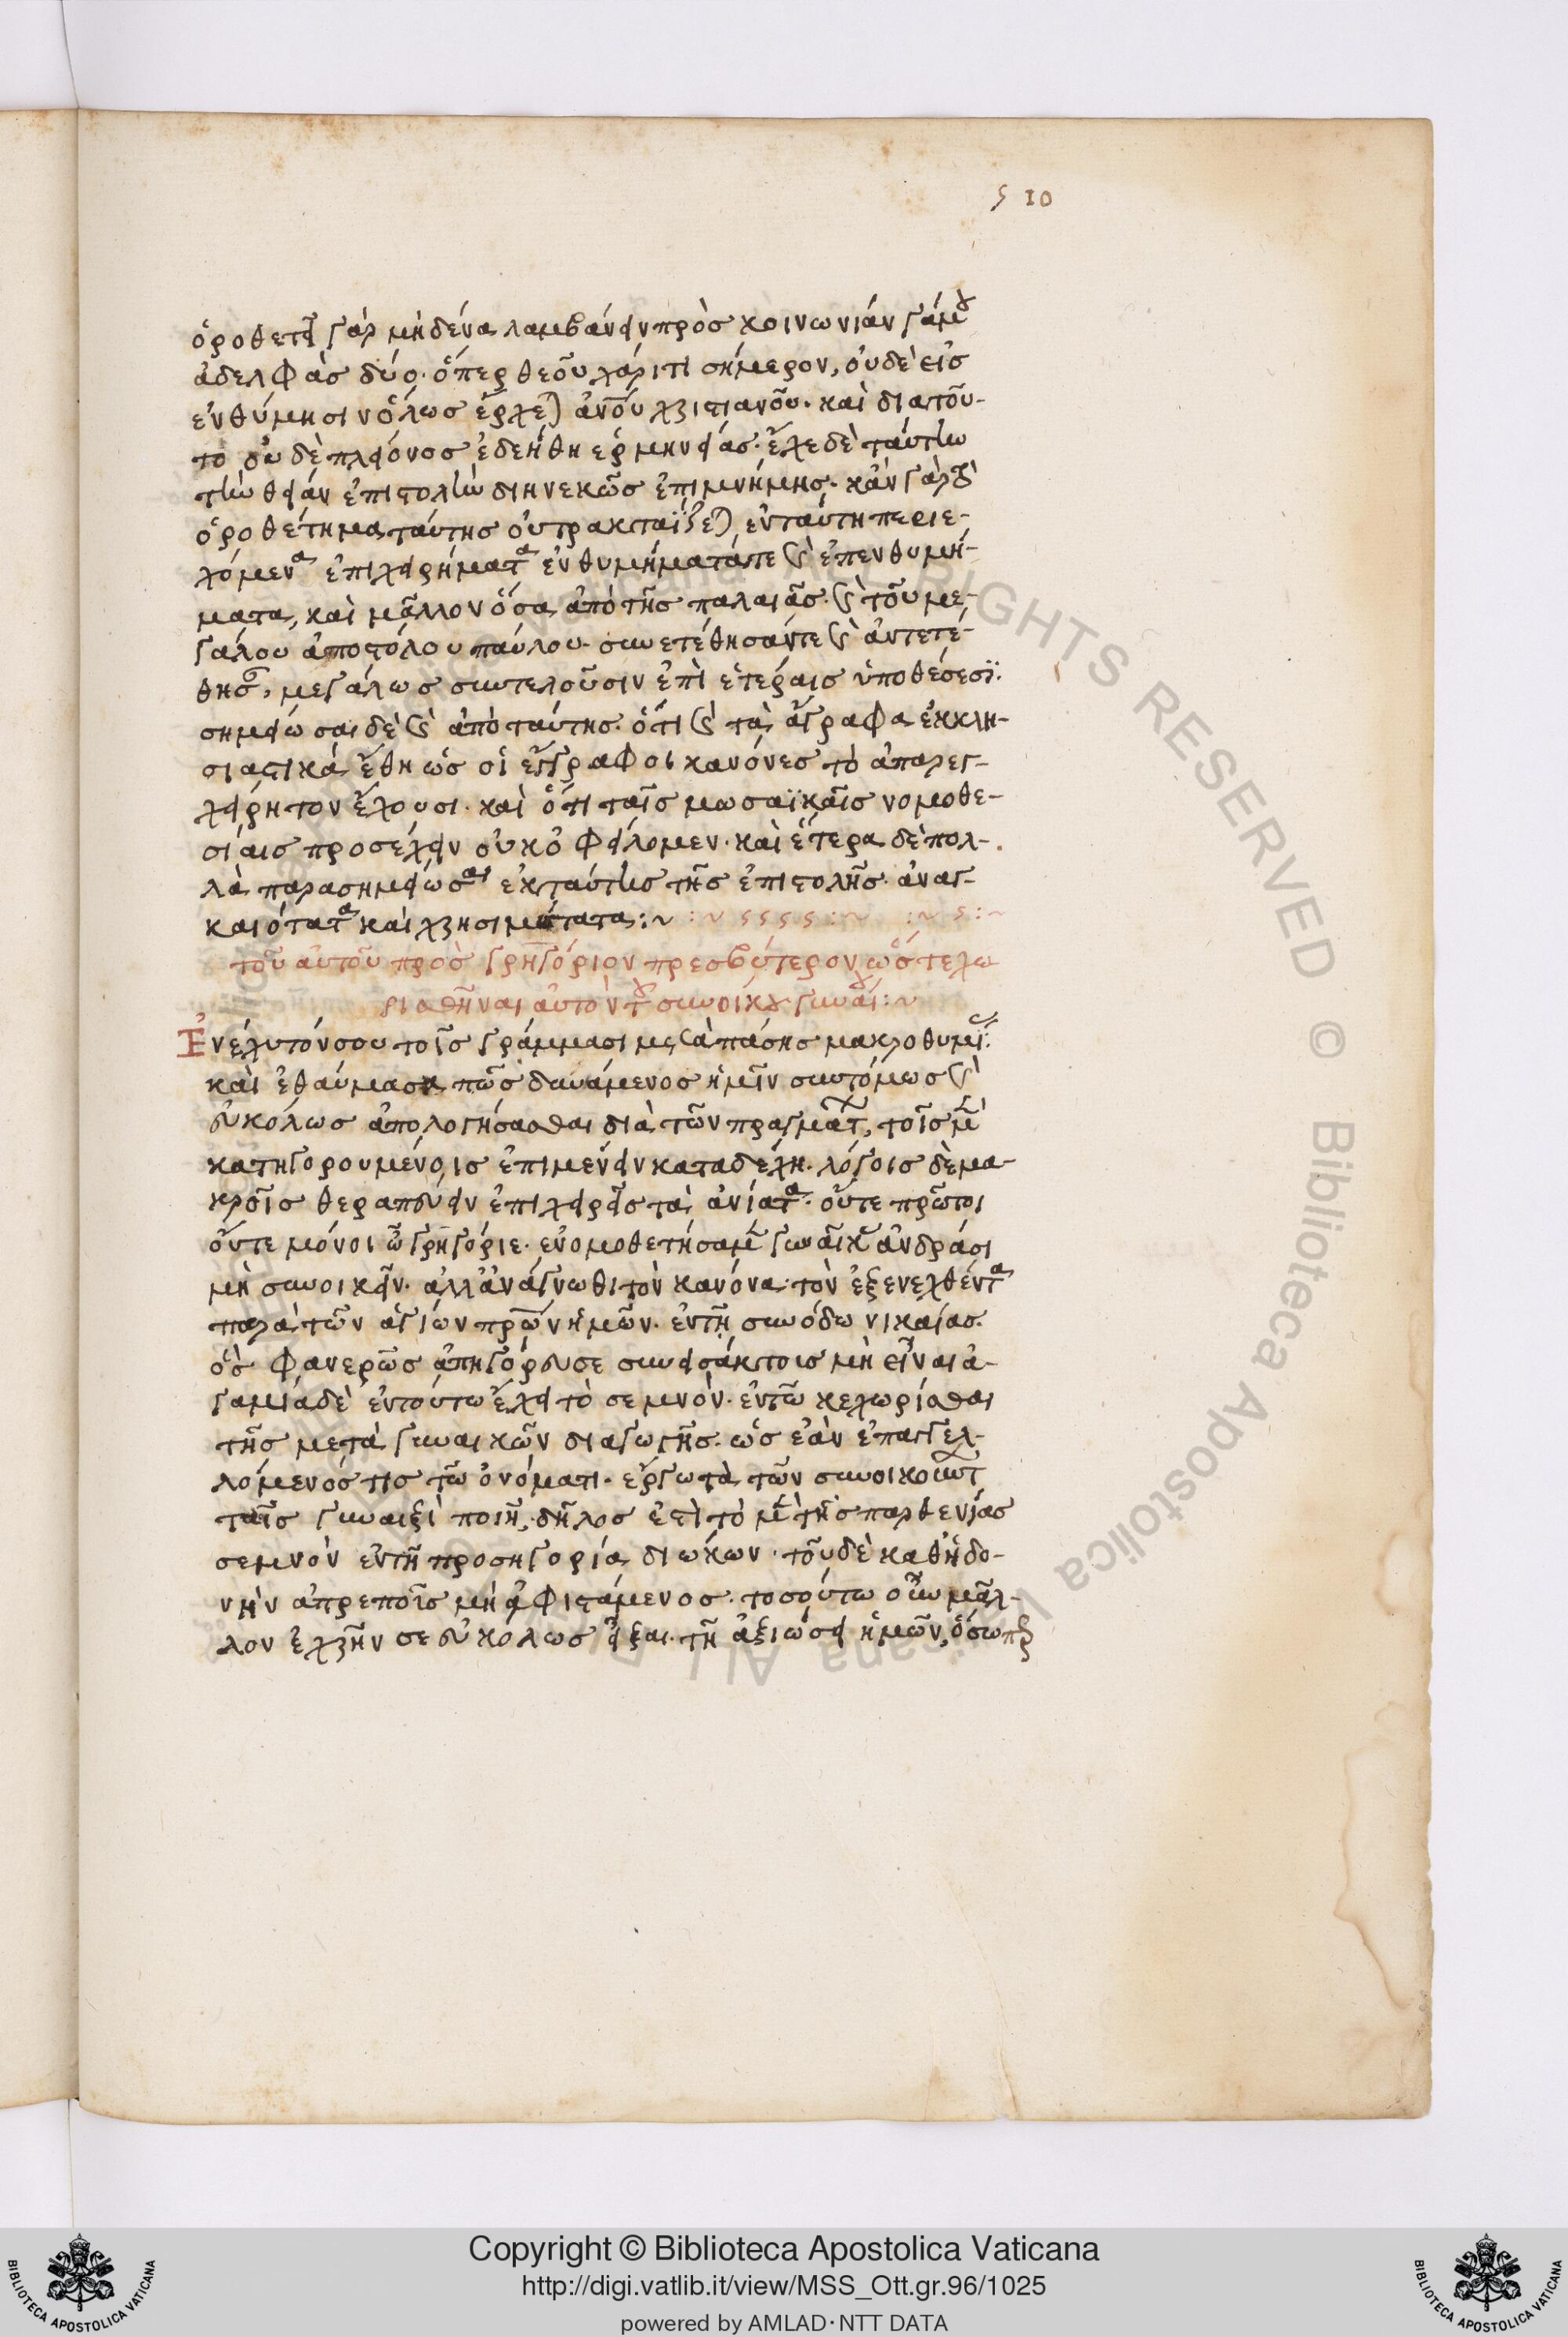 510
ὁροθετεῖ γὰρ μηδένα λαμβάνειν πρὸς κοινωνίαν γάμου
ἀδελφὰς δύο· ὅπερ θεοῦ χάριτι σήμερον, οὐδὲ εἰς
ἐνθύμησιν ὅλως ἔρχεται ἀνοῦ χριστιανοῦ· καὶ διατοῦ-
το οὐδὲ πλείονος ἐδεήθη ἑρμηνείας· ἔχε δὲ ταύτην
τὴν θείαν ἐπιστολὴν διηνεκῶς ἐπιμνήμης· κἂν γὰρ τὸ
ὁροθέτημα ταύτης οὐ τρακταΐζεται, ἐνταύτη περιε-
χόμενα ἐπιχειρήματα ἐνθυμήματά τε καὶ ἐπενθυμή-
ματα, καὶ μᾶλλον ὅσα ἀπὸ τῆς παλαιᾶς· καὶ τοῦ με-
γάλου ἀποστόλου παύλου· συνετέθησάν τε καὶ ἀντετέ-
θησαν, μεγάλως συντελοῦσιν ἐπὶ ἑτέραις ὑποθέσεσϊ:
σημείωσαι δὲ καὶ ἀπὸ ταύτης· ὅτι καὶ τὰ ἄγραφα ἐκκλη-
σιαστικὰ ἔθη ὡς οἱ ἔγγραφοι κανόνες τὸ ἀπαρεγ-
χείρητον ἔχουσι· καὶ ὅτι ταῖς μωσαϊκαῖς νομοθε-
σίαις προσέχειν οὐκ ὀφείλομεν· καὶ ἕτερα δὲ πολ-
λὰ παρασημειώσαι ἐκ ταύτης τῆς ἐπιστολῆς· ἀναγ-
καιότατα καὶ χρησιμώτατα:~
τοῦ αὐτοῦ πρὸς γρηγόριον πρεσβύτερον ὥστε χω
ρισθῆναι αὐτὸν τοῦ συνοίκου γυναί:~
Ἐνέχυτόν σου τοῖς γράμμασι μετὰ πάσης μακροθυμϊ:
καὶ ἐθαύμασα πῶς δυνάμενος ἡμῖν συντόμως καὶ
εὐκόλως ἀπολογήσασθαι διὰ τῶν πραγμάτων, τοῖς μὲν
κατηγορουμένοις ἐπιμένειν καταδέχη· λόγοις δὲ μα-
κροῖς θεραπεύειν ἐπιχειρεῖς τὰ ἀνίατα· οὔτε πρῶτοι
οὔτε μόνοι ὦ γρηγόριε· ἐνομοθετήσαμεν γυναῖκας ἀνδράσι
μὴ συνοικεῖν· ἀλλ' ἀνάγνωθι τὸν κανόνα· τὸν ἐξενεχθέντα
παρὰ τῶν ἁγίων πρων ἡμῶν· ἐν τῆ συνόδω νικαίας·
ὃς φανερῶς ἀπηγόρευσε συνεισάκτοις μὴ εἶναι ἀ-
γαμία δὲ ἐν τούτω ἔχει τὸ σεμνόν· ἐν τῶ κεχωρίσθαι
τῆς μετὰ γυναικῶν διαγωγῆς· ὡς ἐὰν ἐπαγγελ-
λόμενός τις τῶ ὀνόματι· ἔργω τὰ τῶν συνοικούντων
ταῖς γυναιξὶ ποιῆ, δῆλος ἐστὶ τὸ μὲν τῆς παρθενίας
σεμνὸν ἐν τῆ προσηγορία διώκων· τοῦ δὲ καθ' ἡδο-
νὴν ἀπρεποῦς μὴ ἀφιστάμενος· τοσούτω οὖν μᾶλ-
λον ἐχρῆν σε εὐκόλως εἶξαι· τῆ ἀξιώσει ἡμῶν, ὅσωπερ
Copyright © Biblioteca Apostolica Vaticana
http://digi.vatlib.it/view/MSS_Ott.gr.96/1025
powered by AMLAD·NTT DATA